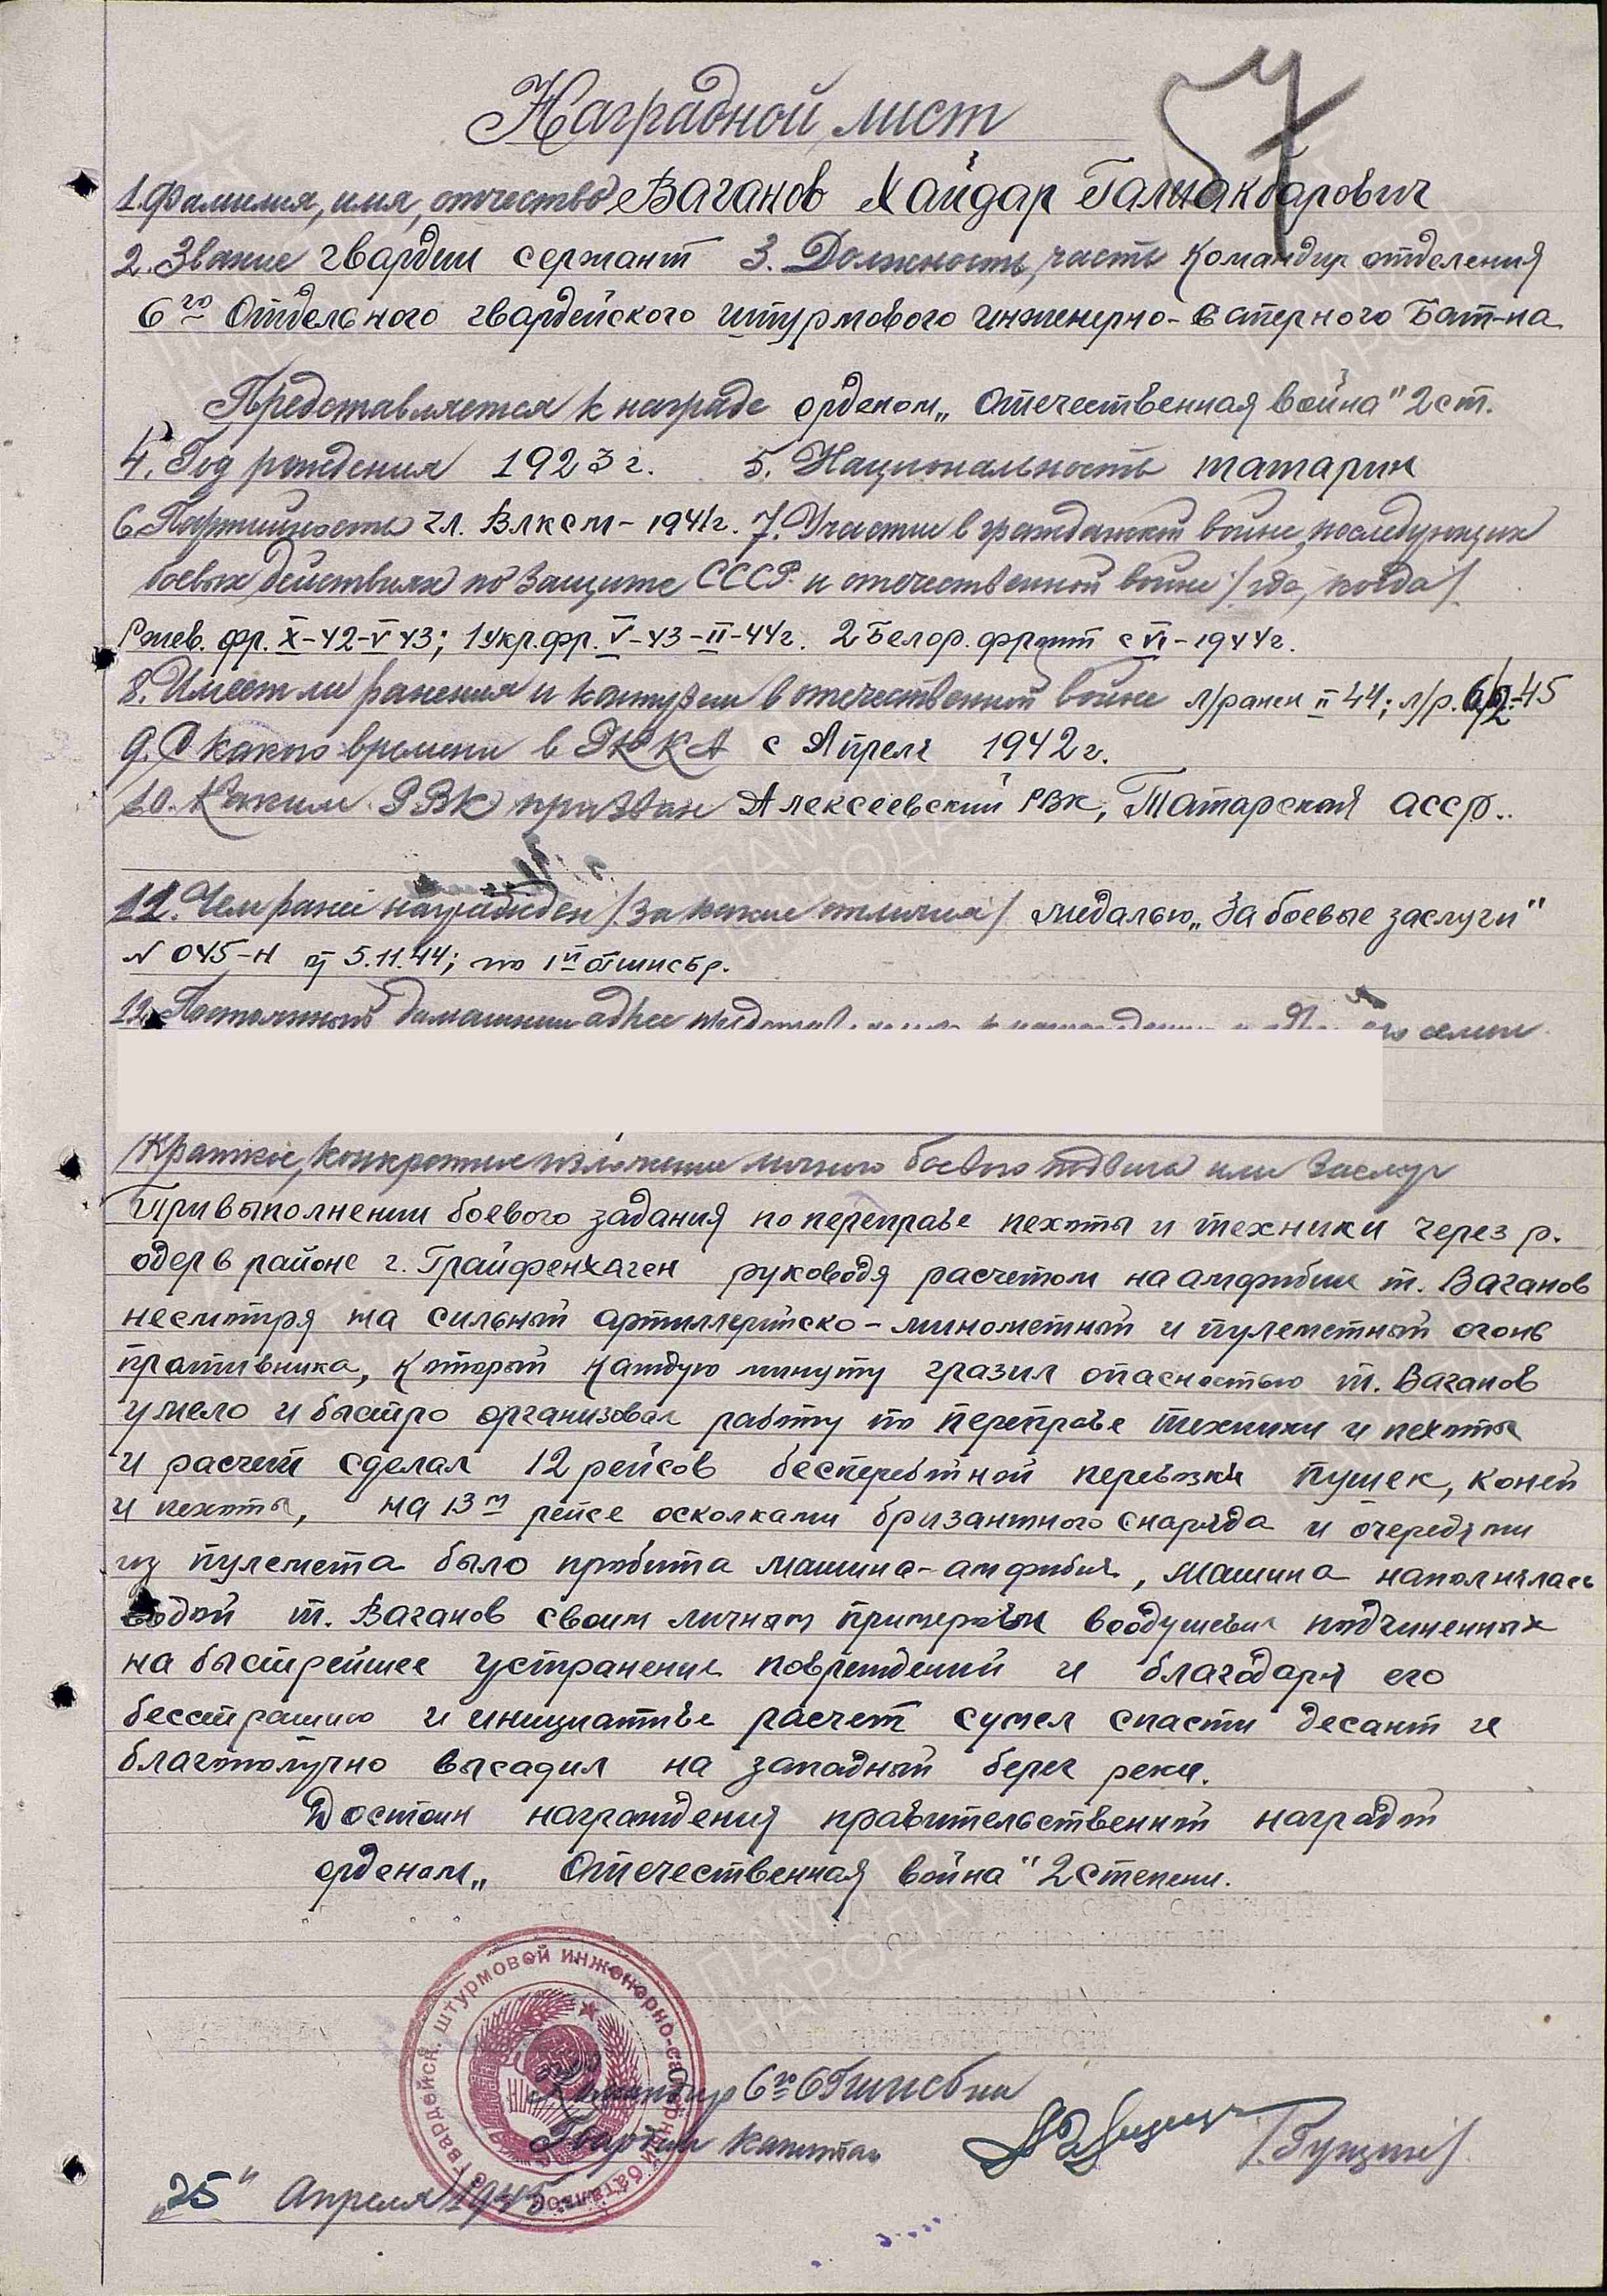 57
Наградной лист
1. Фамилия, имя, отчество Ваганов Хайдар Галиакбарович
2. Звание гвардии сержант 3. Должность, часть командир отделения
6го Отдельного гвардейского штурмового инженерно-саперного Бат-на
Представляется к награде орденом „Отечественная война" 2 ст.
4. Год рождения 1923 г. 5. Национальность татарин
6. Партийность чл. ВЛКСМ - 1941 г. 7. Участие в гражданской войне, последующих
боевых действиях по защите СССР и отечественной войне /где, когда/
Ржев. фр. X-42-V 43; 1 Укр. фр. V-43-II-44 г. 2 Белор. фронт с VI-1944 г.
8. Имеет ли ранения и контузии в отечественной войне л/ранен II 44; л/р. 45
9. С какого времени в РККА с Апреля 1942 г.
10. Каким РВК призван Алексеевский РВК, Татарской асср.
11. Чем ранее награжден /за какие отличия/ медалью „За боевые заслуги"
N 045-Н от 5.11.44; по 1й ОГШИСБр.
12. Постоянный домашний адрес его семьи
/Краткое, конкретное изложение личного боевого подвига или заслуг
При выполнении боевого задания по переправе пехоты и техники через р.
одер в районе г. Грайфенхаген руководя расчетом на амфибии т. Ваганов
несмотря на сильный артиллерийско-минометный и пулеметный огонь
противника, который каждую минуту гразил опасностью т. Ваганов
умело и быстро организовал работу по переправе техники и пехоты
и расчет сделал 12 рейсов бесперебойной перевозки пушек, коней
и пехоты, на 13м рейсе осколками бризантного снаряда и очередями
из пулемета было пробита машина-амфибия, машина наполнялась
водой т. Ваганов своим личным примером воодушевил подчиненных
на быстрейшее устранение повреждений и благодаря его
бесстрашию и инициативе расчет сумел спасти десант и
благополучно высадил на западный берег реки.
Достоин награждения правительственной наградой
орденом „Отечественная война" 2 степени.
гвардейск. штурмовой инженерно-саперный батальон
Командир 6го ОГШИСБ-на
Гвардии капитан
„25" Апреля 1945
ПАМЯТЬ НАРОДА